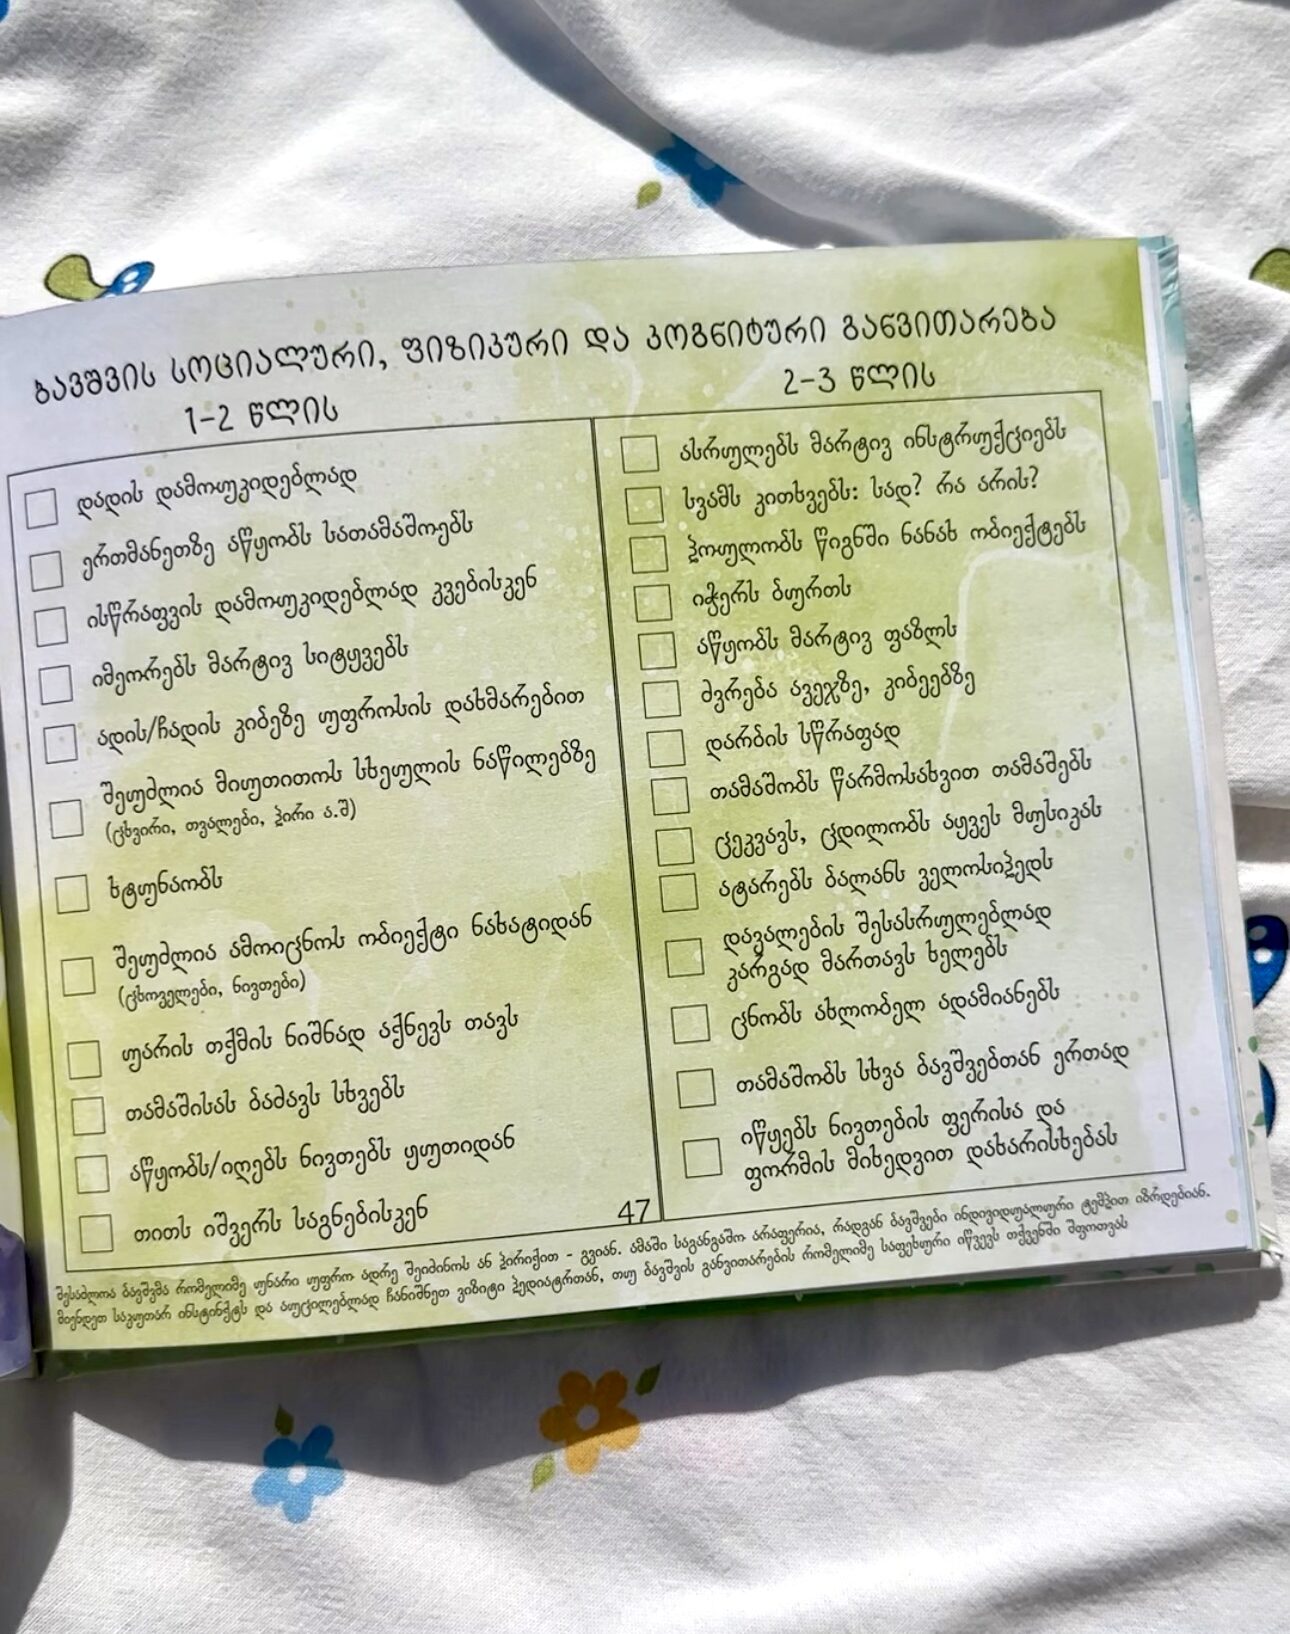 ბავშვის სოციალური, ფიზიკური და კოგნიტური განვითარება
1-2 წლის
დადის დამოუკიდებლად
ერთმანეთზე აწყობს სათამაშოებს
ისწრაფვის დამოუკიდებლად კვებისკენ
იმეორებს მარტივ სიტყვებს
ადის/ჩადის კიბეზე უფროსის დახმარებით
შეუძლია მიუთითოს სხეულის ნაწილებზე
(ცხვირი, თვალები, პირი ა.შ)
ხტუნაობს
შეუძლია ამოიცნოს ობიექტი ნახატიდან
(ცხოველები, ნივთები)
უარის თქმის ნიშნად აქნევს თავს
თამაშისას ბაძავს სხვებს
აწყობს/იღებს ნივთებს ყუთიდან
თითს იშვერს საგნებისკენ
2-3 წლის
ასრულებს მარტივ ინსტრუქციებს
სვამს კითხვებს: სად? რა არის?
პოულობს წიგნში ნანახ ობიექტებს
იჭერს ბურთს
აწყობს მარტივ ფაზლს
ძვრება ავეჯზე, კიბეებზე
დარბის სწრაფად
თამაშობს წარმოსახვით თამაშებს
ცეკვავს, ცდილობს აყვეს მუსიკას
ატარებს ბალანს ველოსიპედს
დავალების შესასრულებლად
კარგად მართავს ხელებს
ცნობს ახლობელ ადამიანებს
თამაშობს სხვა ბავშვებთან ერთად
იწყებს ნივთების ფერისა და
ფორმის მიხედვით დახარისხებას
47
შესაძლოა ბავშვმა რომელიმე უნარი უფრო ადრე შეიძინოს ან პირიქით - გვიან. ამაში საგანგაშო არაფერია, რადგან ბავშვები ინდივიდუალური ტემპით იზრდებიან.
მიენდეთ საკუთარ ინსტინქტს და აუცილებლად ჩანიშნეთ ვიზიტი პედიატრთან, თუ ბავშვის განვითარების რომელიმე საფეხური იწვევს თქვენში შფოთვას